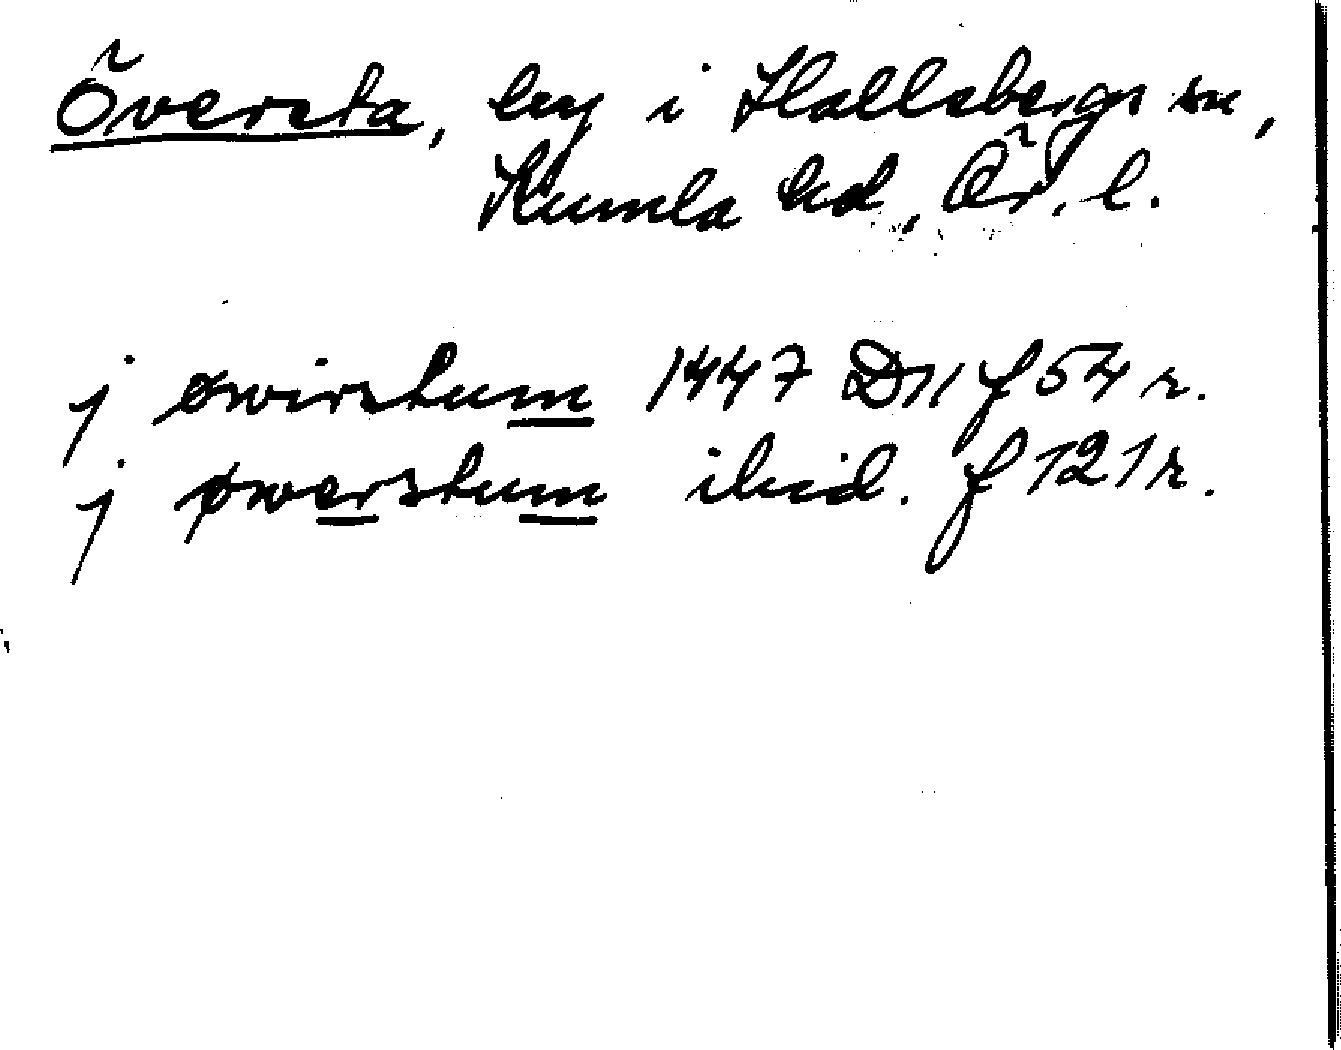 Översta, by i Hallsbergs sn,
Kumla hd, Ör. l.
j øwirstum 1447 D 11 f 54 r.
j øwerstum ibid. f 121 r.